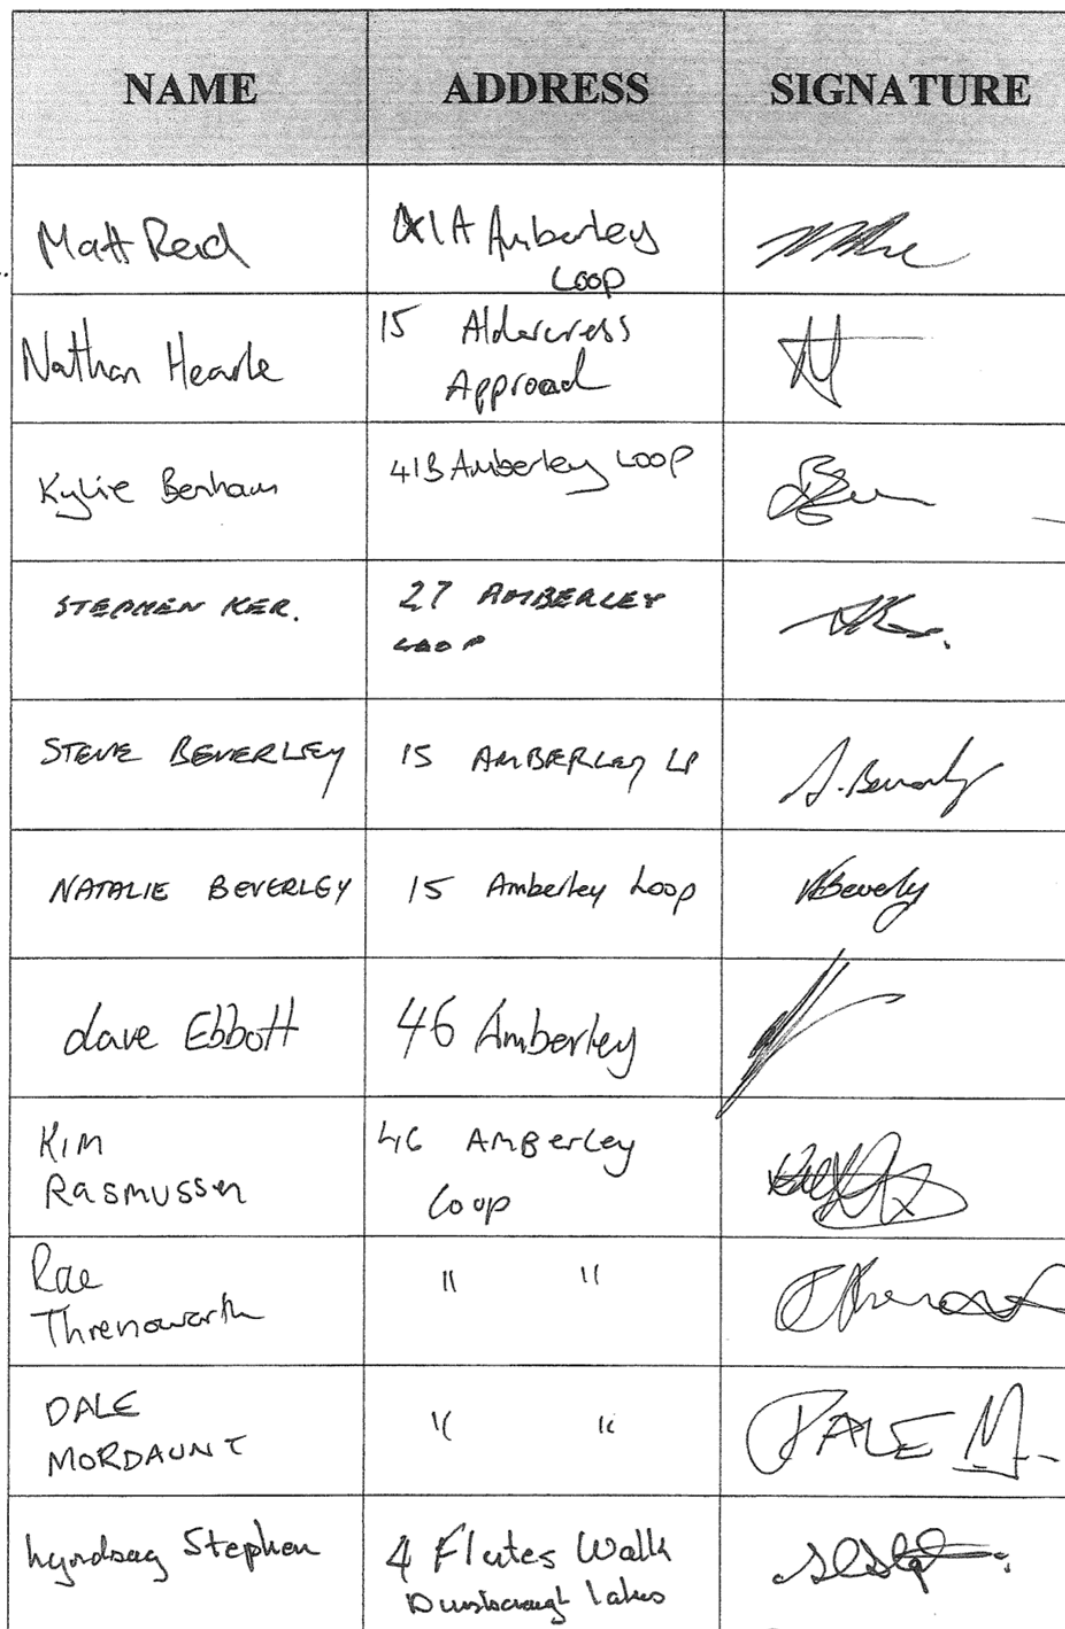 NAME ADDRESS SIGNATURE
Matt Reid 41A Amberley
Loop
Nathan Hearle 15 Aldercress
Approach
Kylie Benham 41B Amberley Loop
STEPHEN KER. 27 AMBERLEY
LOOP
STEVE BEVERLEY 15 AMBERLEY LP S. Beverley
NATALIE BEVERLEY 15 Amberley Loop NBeverley
dave Ebbott 46 Amberley
KIM 46 AMBerley
RASMUSSEN Loop
Rae " "
Threnoworth
DALE " " DALE M
MORDAUNT
Lyndsay Stephen 4 Flutes Walk
Dunsborough Lakes